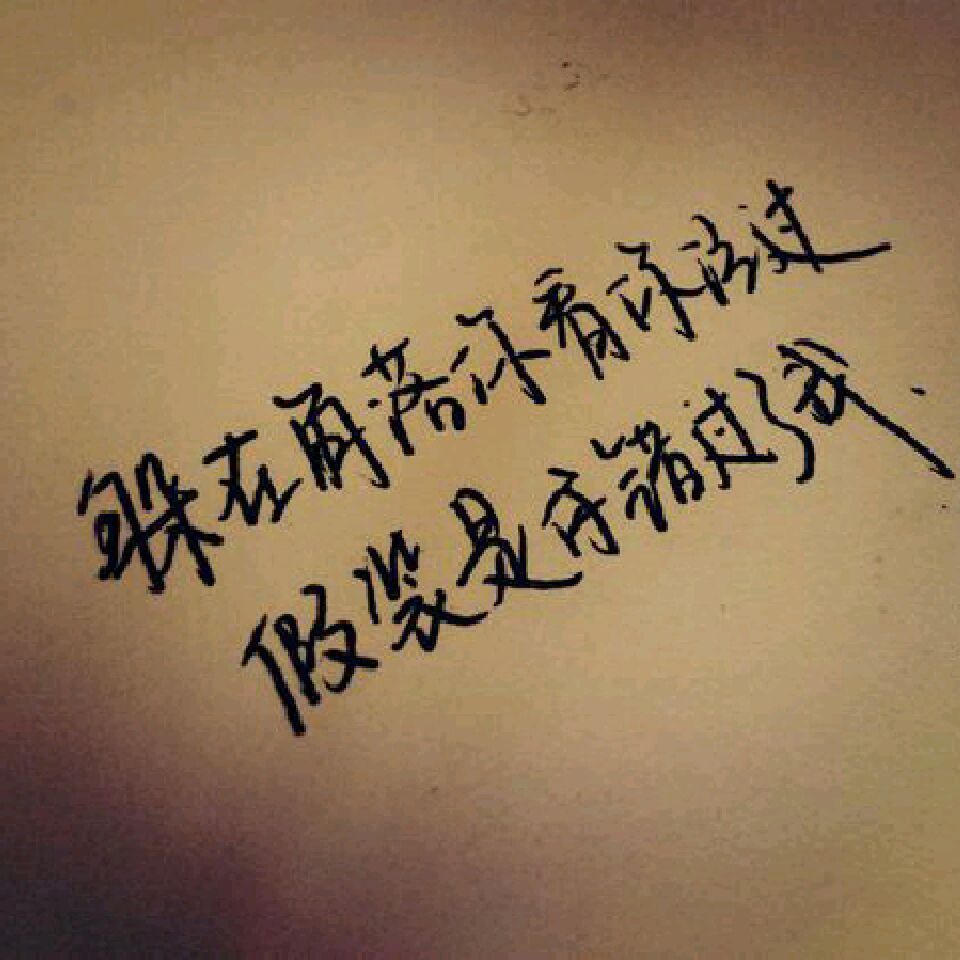 躲在角落看你路过
假装是你错过了我